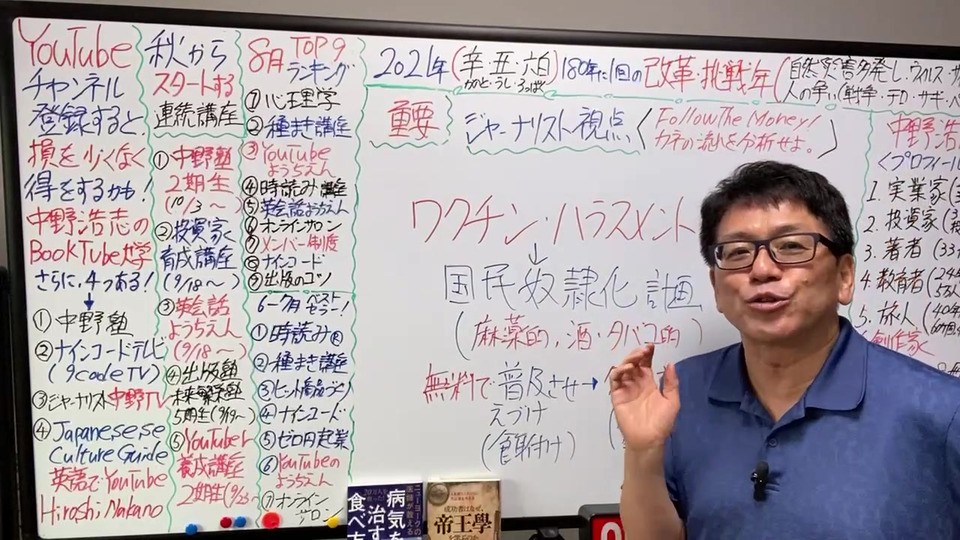 YouTube
チャンネル
登録すると、
損を少くなく
得をするかも!
中野浩志の
BookTube大学
さらに、4つある!
①中野塾
②ナインコードテレビ
(9codeTV)
③ジャーナリスト中野TV
④Japanesese
Culture Guide
英語でYouTube
Hiroshi Nakano
秋から
スタートする
連続講座
①中野塾
2期生
(10/3~)
②投資家
育成講座
(9/18~)
③英会話
ようちえん
(9/18~)
④出版塾
5期生(9/19~)
⑤YouTuber
養成講座
2期生(9/23~
8月TOP9
ランキング
①心理学
②種まき講座
③YouTube
ようちえん
④時読み講座
⑤英会話ようちえん
⑥オンラインサロン
⑦メンバー制度
⑧ナインコード
⑨出版のコツ
6~7月
①時読み
②種まき講座
③ヒット商品づくり
④ナインコード
⑤ゼロ円起業
⑥YouTubeの
ようちえん
⑦オンライン
サロン
2021年(辛・丑・六白)180年に1回の己改革・挑戦年(自然災害多発し・ウイルス・サ
かのと・うし・ろっぱく
人の争い(戦争・テロ・サギ・
重要
ジャーナリスト視点〈Follow The Money!
カネの流れを分析せよ。〉
ワクチン・ハラスメント
↓
国民奴隷化計画
(麻薬的、酒・タバコ的)
無料で普及させ→
えづけ
(餌付け)
中野浩
〈プロフィール
1. 実業家
2. 投資家
3. 著者(33
4. 教育者(24年
5万人
5. 旅人(40年
60ヵ国
創作家
ニューヨークの
医師が教える
病気を
治す
食べ方
成功者はなぜ、
帝王學
を学ぶのか